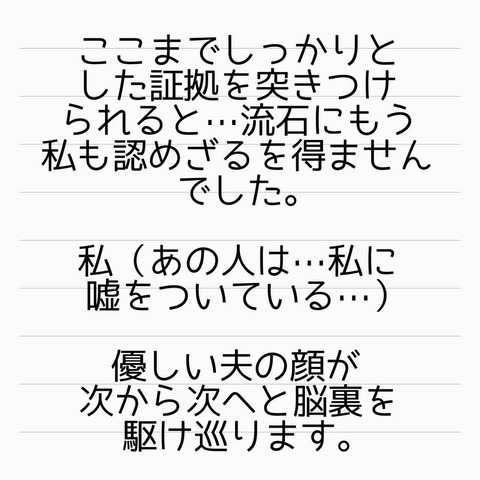 ここまでしっかりと
した証拠を突きつけ
られると…流石にもう
私も認めざるを得ません
でした。
私（あの人は…私に
嘘をついている…）
優しい夫の顔が
次から次へと脳裏を
駆け巡ります。